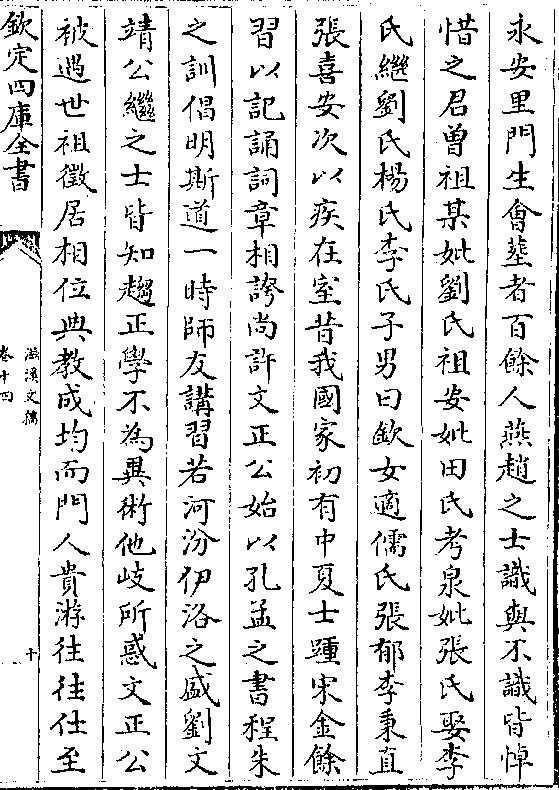 永安里門生會塟者百餘人燕趙之士識與不識皆悼
惜之君曾祖某妣劉氏祖安妣田氏考泉妣張氏娶李
氏繼劉氏楊氏李氏子男曰欽女適儒氏張郁李秉直
張喜安次以疾在室昔我國家初有中夏士踵宋金餘
習以記誦詞章相誇尚許文正公始以孔孟之書程朱
之訓倡明斯道一時師友講習若河汾伊洛之盛劉文
靖公繼之士皆知趨正學不為異術他岐所惑文正公
被遇世祖徵居相位典教成均而門人貴游往往仕至
欽定四庫全書
滋溪文稿
卷十四
十